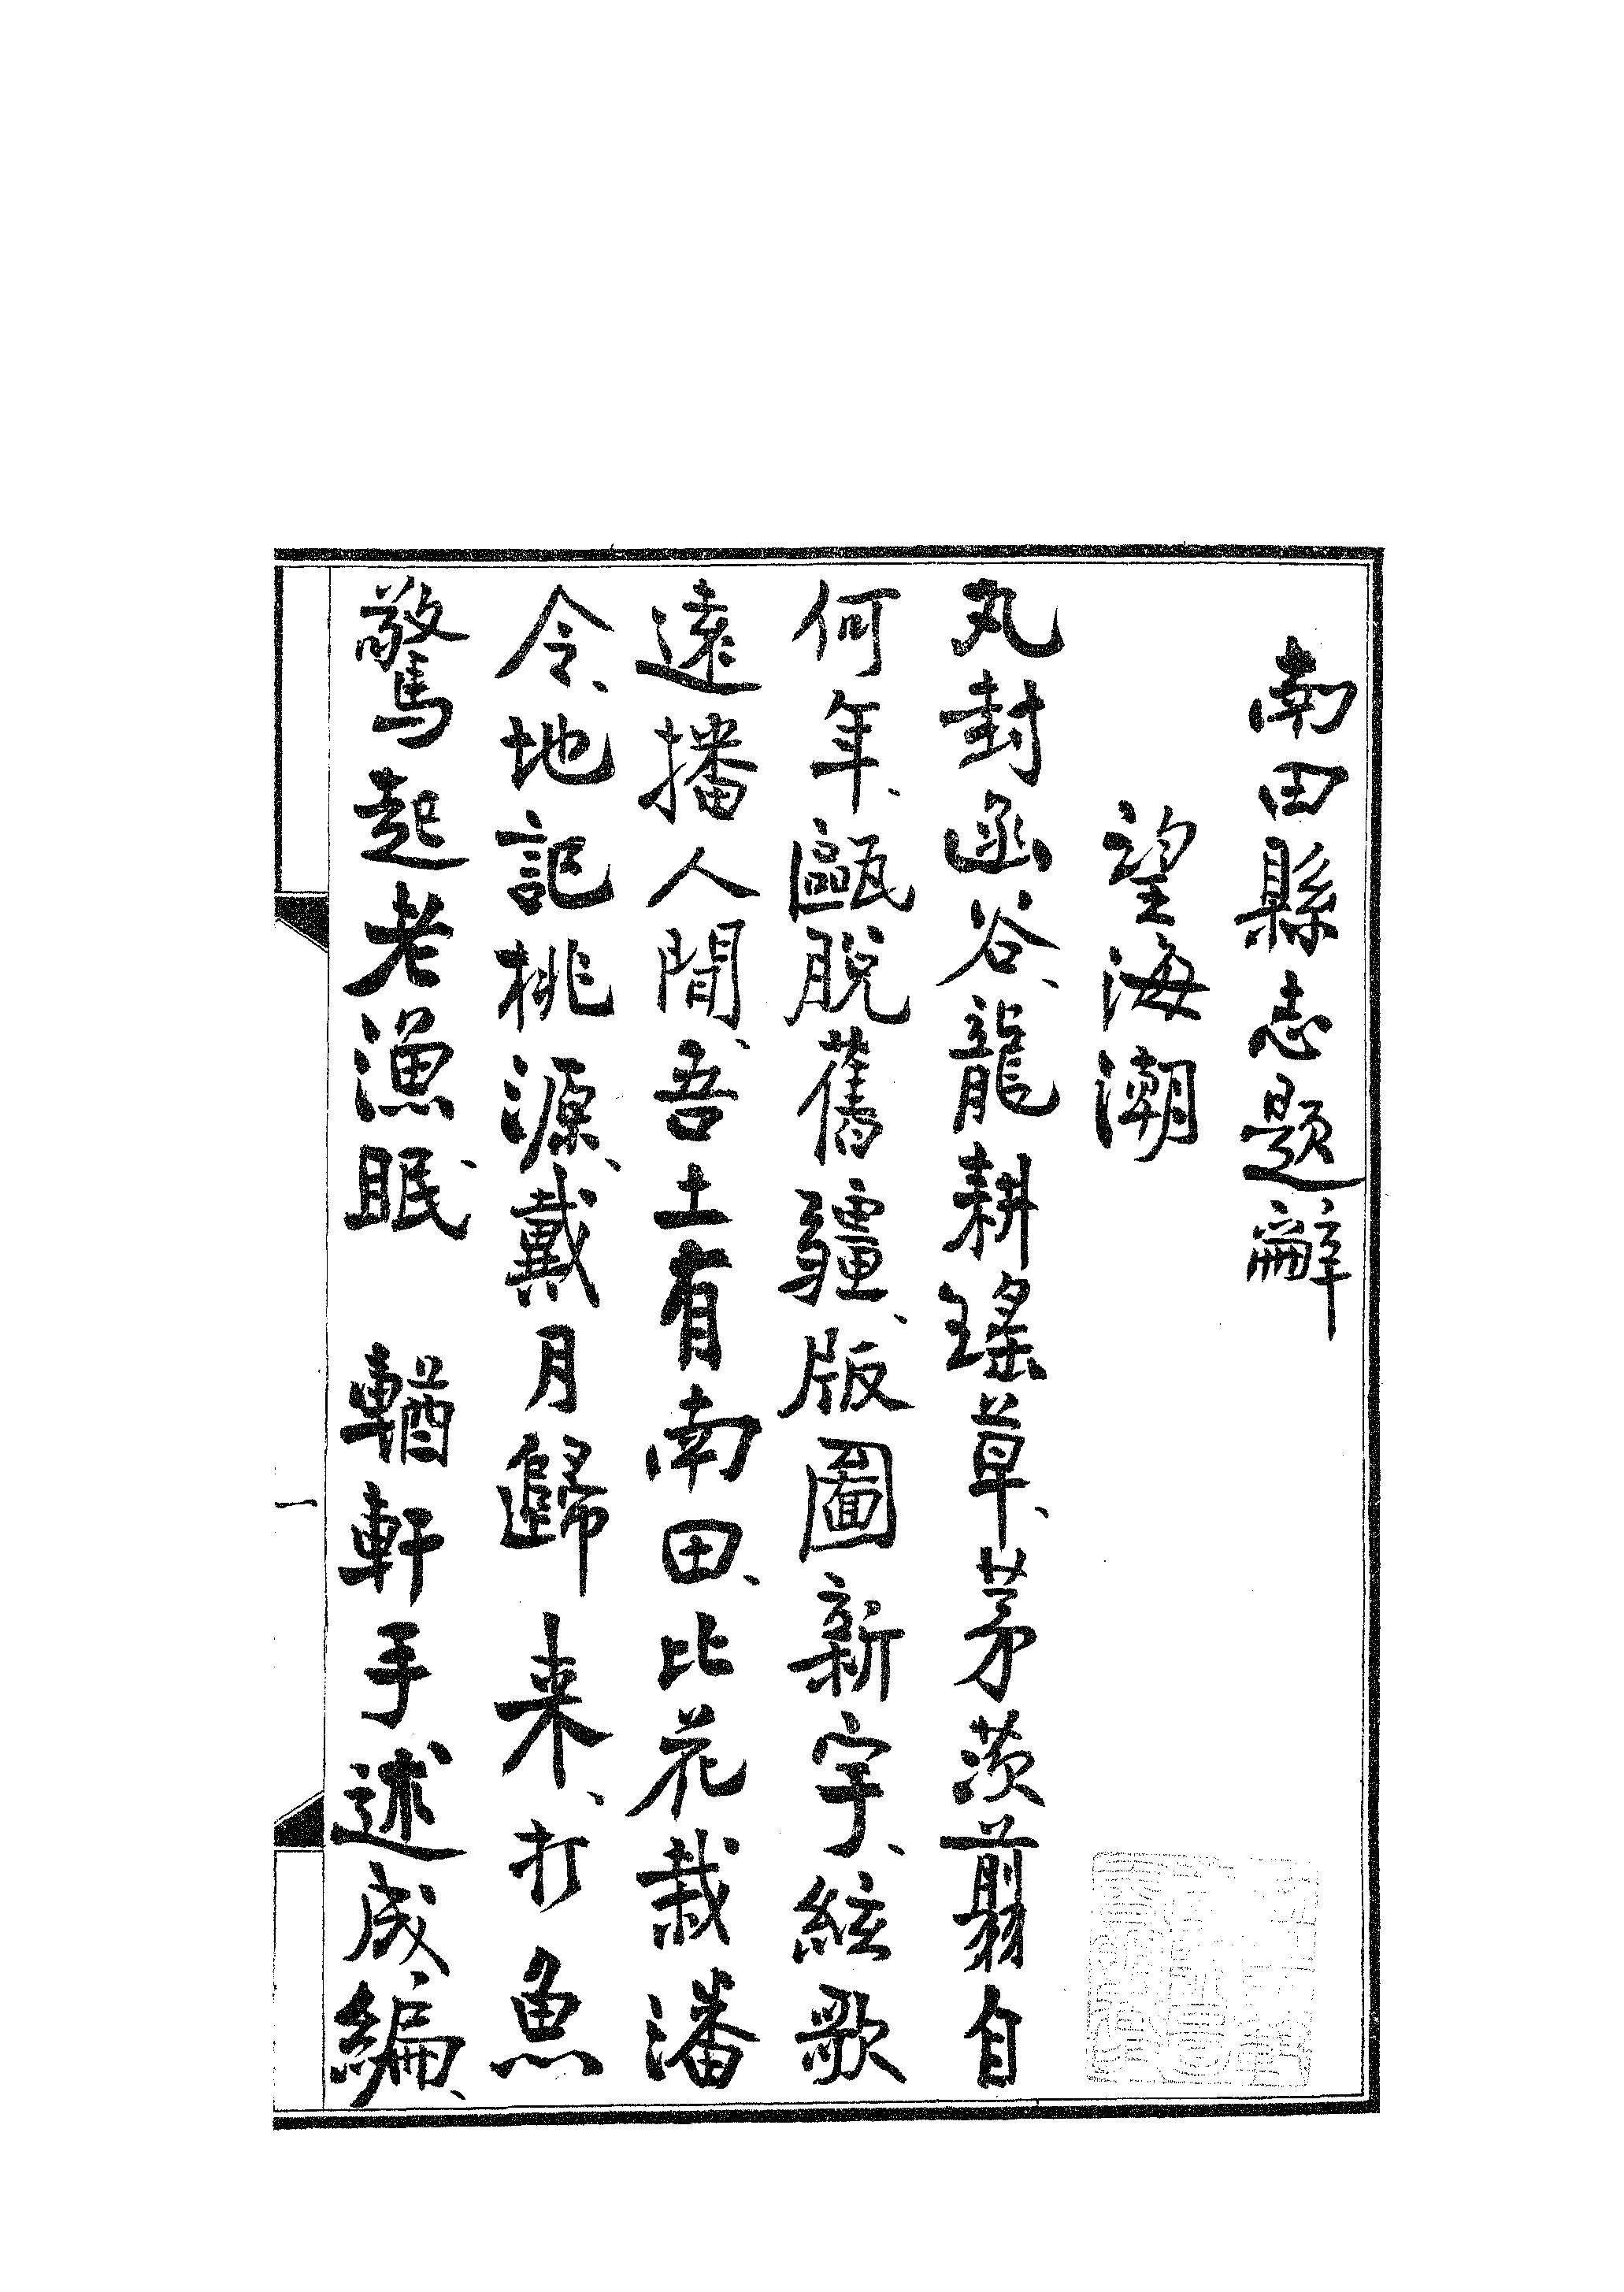 南田縣志題辭
望海潮
丸封函谷、龍耕瑤草、茅茨翦自
何年、甌脫舊疆、版圖新宇、絃歌
遠播人間、吾土有南田、比花栽潘
令、地記桃源、戴月歸来、打魚
驚起老漁眠、 輶軒手述成編、
一